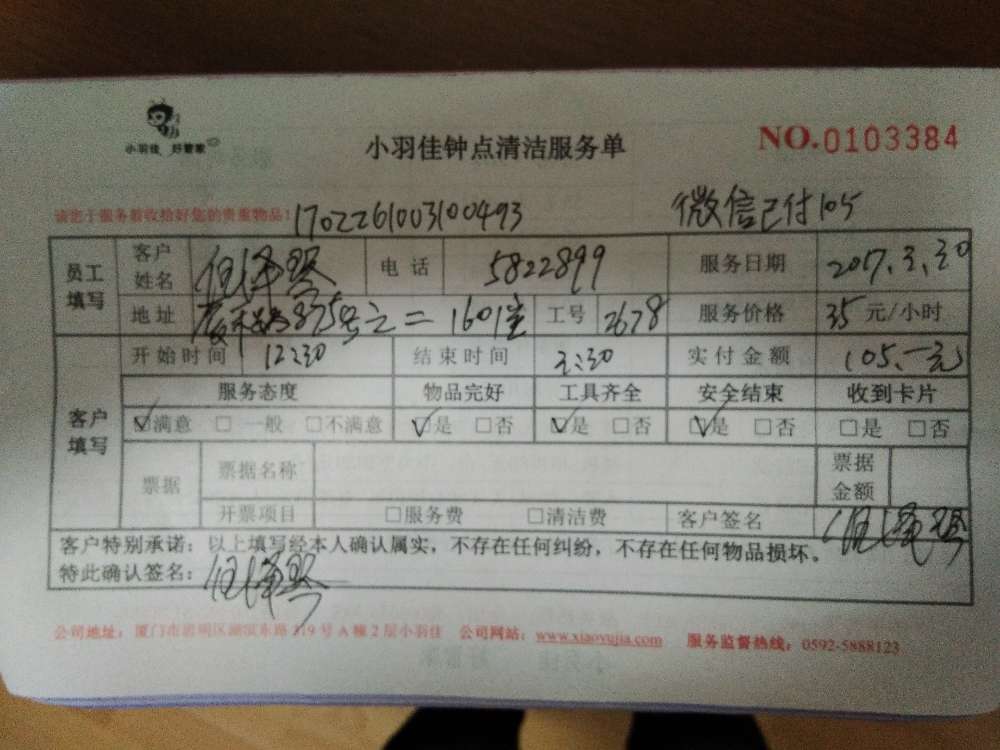 小羽佳 好管家
小羽佳钟点清洁服务单
NO.0103384
请您于服务前收拾好您的贵重物品!
1702261003100493
微信已付105
员工填写 客户姓名 电话 5822899 服务日期 2017.3.30
地址 875号之二1601室 工号 2678 服务价格 35 元/小时
客户填写 开始时间 12:30 结束时间 3:30 实付金额 105.一元
服务态度 物品完好 工具齐全 安全结束 收到卡片
☑满意 □一般 □不满意 ☑是 □否 ☑是 □否 ☑是 □否 □是 □否
票据 票据名称 票据金额
开票项目 □服务费 □清洁费 客户签名
客户特别承诺:以上填写经本人确认属实,不存在任何纠纷,不存在任何物品损坏。
特此确认签名:
公司地址:厦门市思明区湖滨东路319号A幢2层小羽佳 公司网站:www.xiaoyujia.com 服务监督热线:0592-5888123